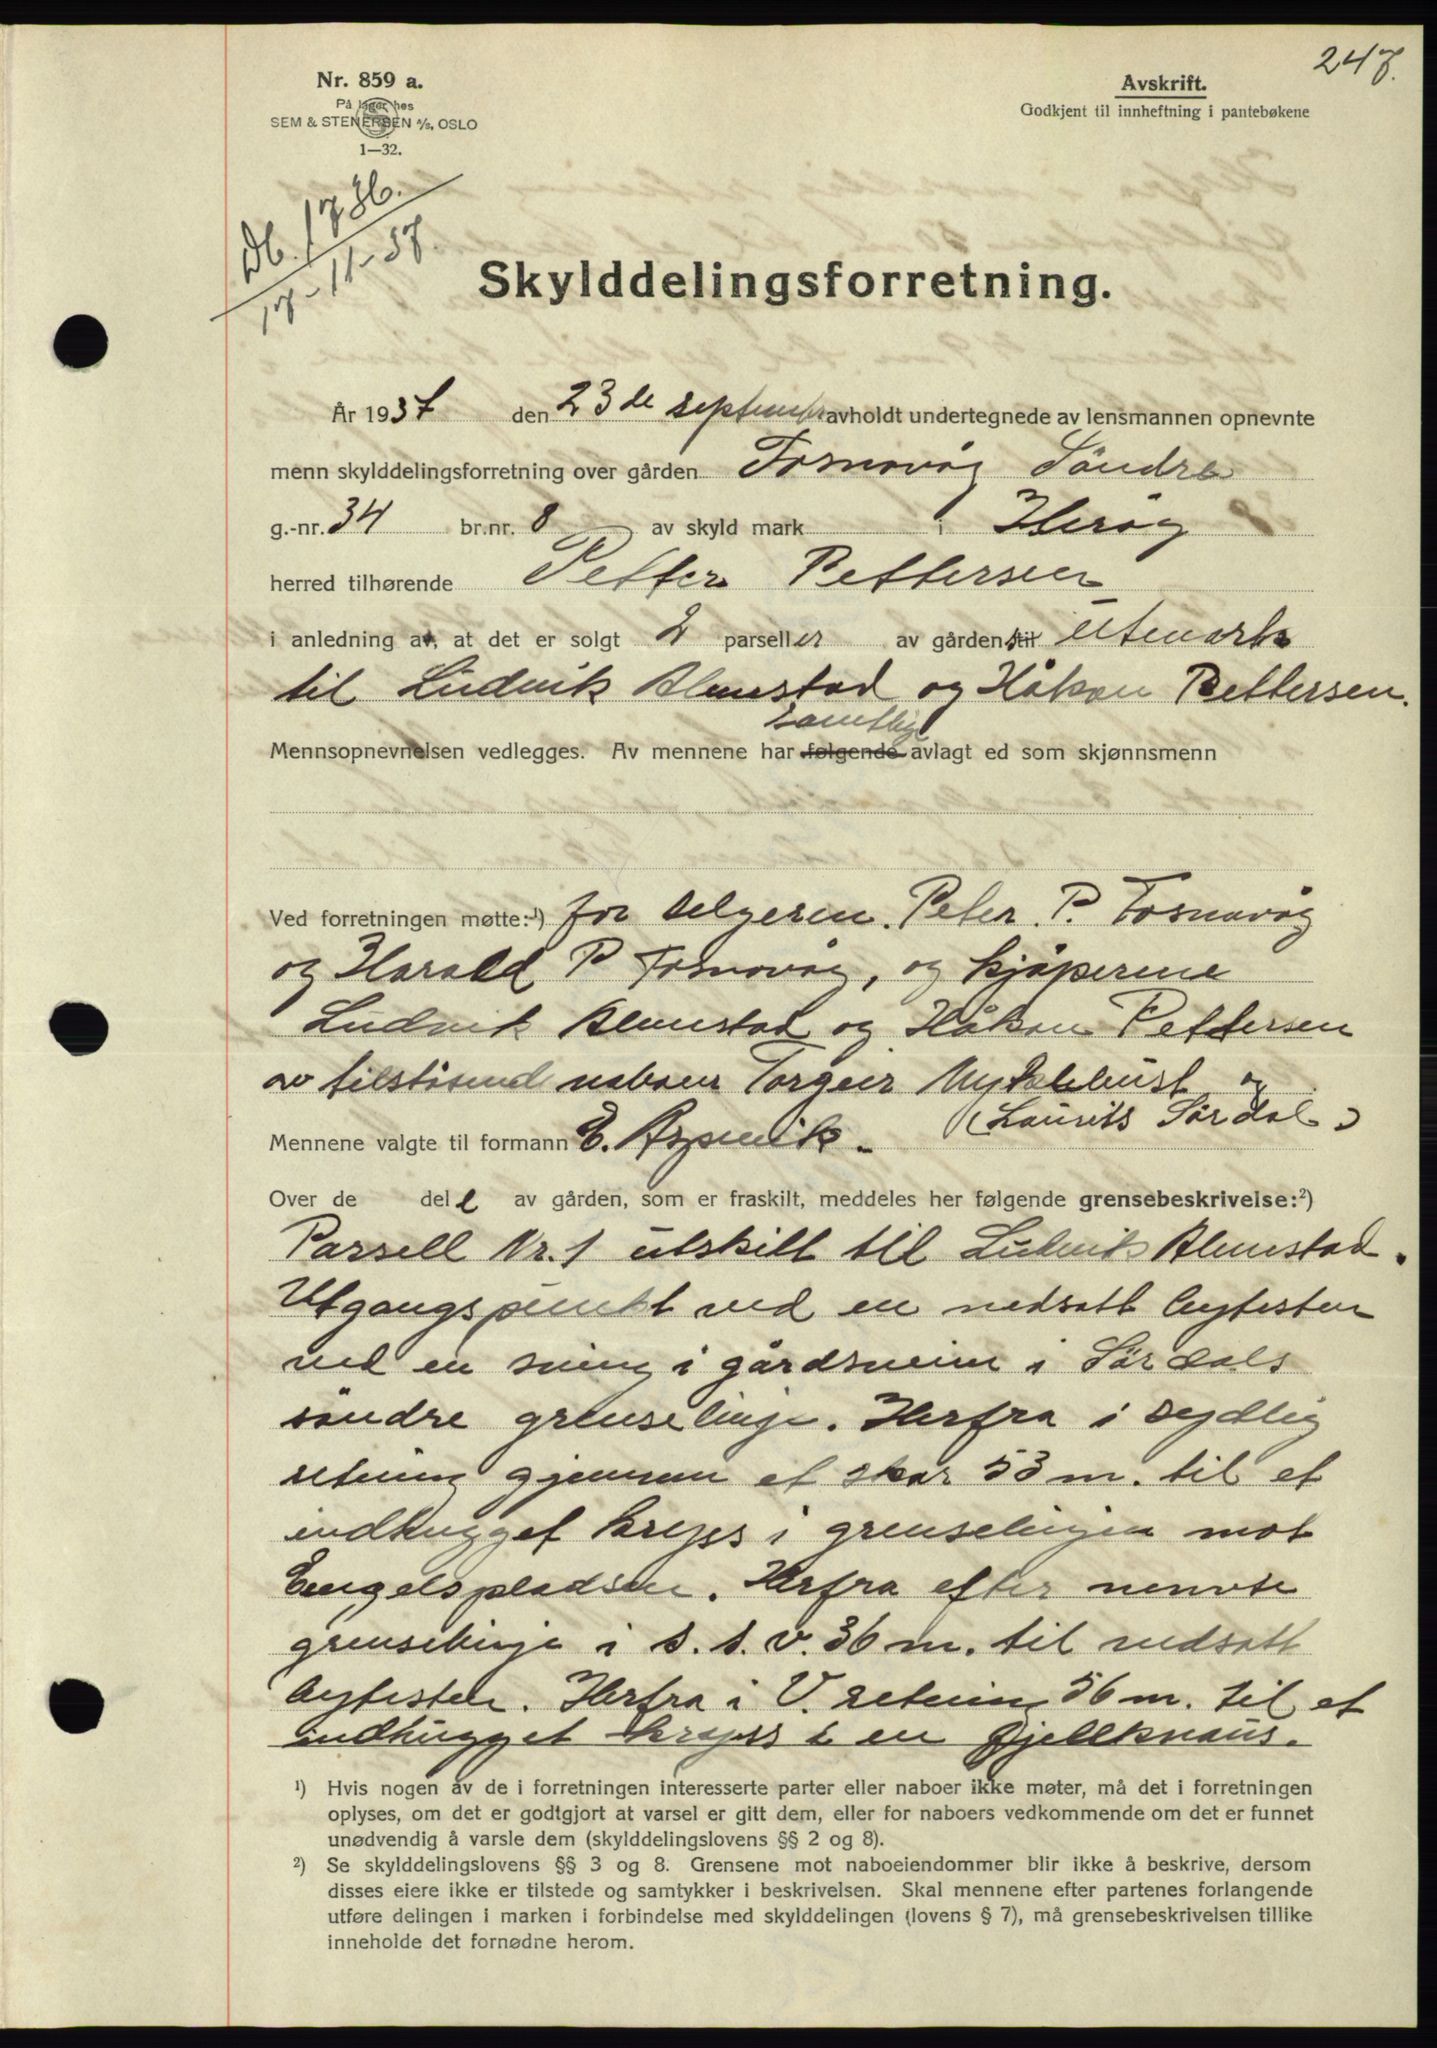 247.
Nr. 859 a.
På lager hos
SEM & STENERSEN A/S, OSLO
1—32.
Avskrift.
Godkjent til innheftning i pantebøkene
Db. 1736.
17-11-37.
Skylddelingsforretning.
År 1937 den 23de september avholdt undertegnede av lensmannen opnevnte
menn skylddelingsforretning over gården Fosnavåg Söndre
g.-nr. 34 br.nr. 8 av skyld mark i Herøy
herred tilhørende Petter Pettersen
i anledning av, at det er solgt 2 parseller av gårdens til Utmark
til Ludvik Almestad og Håkon Pettersen.
samtlige
Mennsopnevnelsen vedlegges. Av mennene har følgende avlagt ed som skjønnsmenn
Ved forretningen møtte:¹) for selgeren. Peter. P. Fosnavåg
og Harald P Fosnavåg, og kjøperene
Ludvik Almestad og Håkon Pettersen
av tilstøsend naboer Torgeir Myklebust og
(Laurits Sørdal)
Mennene valgte til formann E. Aspevik.
Over de del e av gården, som er fraskilt, meddeles her følgende grensebeskrivelse:²)
Parsell Nr. 1 utskilt til Ludvik Almestad.
Utgangspunkt ved en nedsatt bytesten
ved en sving i gårdsveien i Sørdals
søndre grenselinje. Herfra i sydlig
retning gjennem et skar 53 m. til et
indhugget kryss i grenselinjen mot
Engelspladsen. Herfra efter nevnte
grenselinje i s. s. v. 36 m. til nedsatt
bytesten. Herfra i V. retning 56 m. til et
indhugget kryss i en fjellknaus.
¹) Hvis nogen av de i forretningen interesserte parter eller naboer ikke møter, må det i forretningen
oplyses, om det er godtgjort at varsel er gitt dem, eller for naboers vedkommende om det er funnet
unødvendig å varsle dem (skylddelingslovens §§ 2 og 8).
²) Se skylddelingslovens §§ 3 og 8. Grensene mot naboeiendommer blir ikke å beskrive, dersom
disses eiere ikke er tilstede og samtykker i beskrivelsen. Skal mennene efter partenes forlangende
utføre delingen i marken i forbindelse med skylddelingen (lovens § 7), må grensebeskrivelsen tillike
inneholde det fornødne herom.